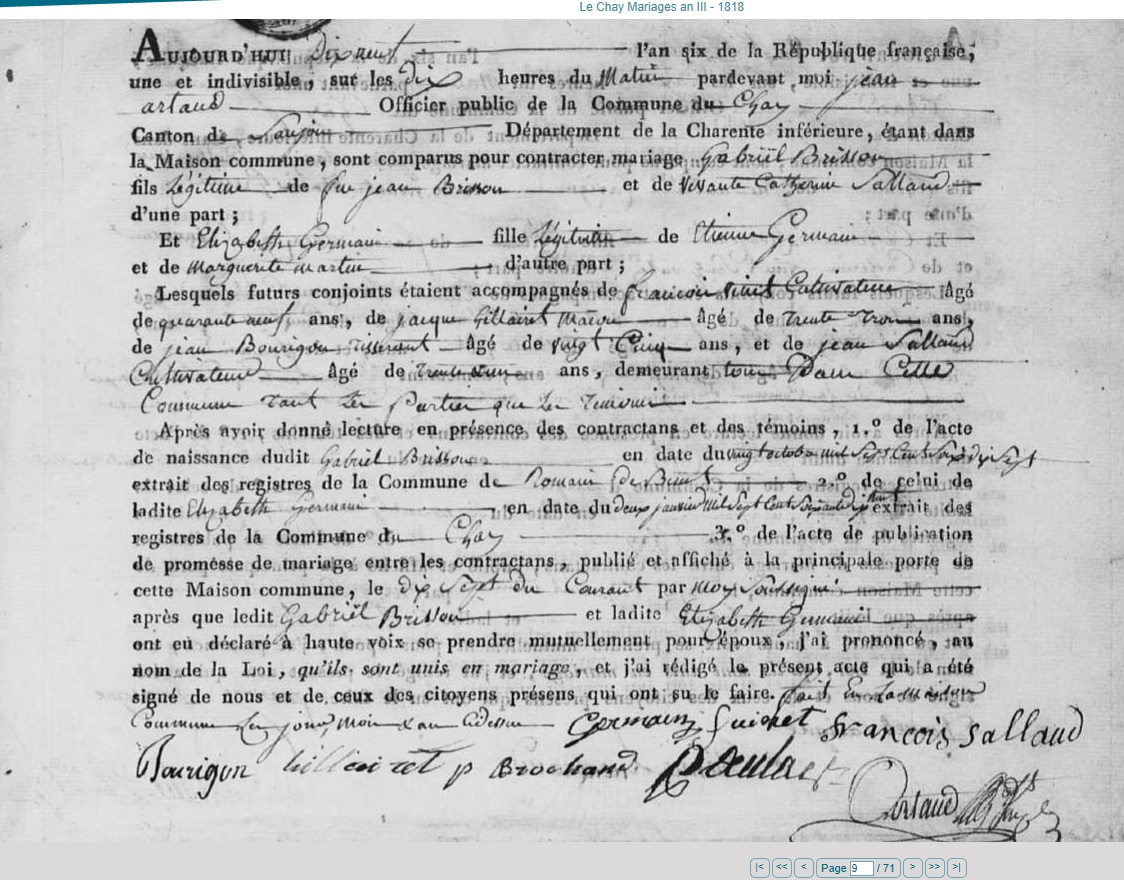 Le Chay Mariages an III - 1818
AUJOURD'HUI Dix neuf l'an six de la République française,
une et indivisible, sur les dix heures du Matin pardevant moi jean
artaud Officier public de la Commune du Chay
Canton de Saujon Département de la Charente inférieure, étant dans
la Maison commune, sont comparus pour contracter mariage Gabriël Brisson
fils Légitime de feu jean Brisson et de Vivante Catherine Sallaud
d'une part ;
Et Elizabeth Germain fille Légitime de Etienne Germain
et de Marguerite martin d'autre part ;
Lesquels futurs conjoints étaient accompagnés de francois Cultivateur âgé
de quarante neuf ans, de jacque Gillairet Macon âgé de trente trois ans,
de jean Bourigon Tisserant âgé de vingt Cinq ans, et de jean Sallaud
Cultivateur âgé de ans, demeurant tous Dans Cette
Commune tant Les Parties que Les Temoins
Après avoir donné lecture en présence des contractans et des témoins, 1.º de l'acte
de naissance dudit Gabriel Brisson en date du vingt octobre mil Sept Cent Soix dix Sept
extrait des registres de la Commune de Romain de Benet 2.º de celui de
ladite Elizabeth Germain en date du deux janvier Mil Sept Cent extrait des
registres de la Commune du Chay 3.º de l'acte de publication
de promesse de mariage entre les contractans, publié et affiché à la principale porte de
cette Maison commune, le dix Sept du Courant par moy Soussigné
après que ledit Gabriël Brisson et ladite Elizabeth Germain
ont eu déclaré à haute voix se prendre mutuellement pour époux, j'ai prononcé, au
nom de la Loi, qu'ils sont unis en mariage, et j'ai rédigé le présent acte qui a été
signé de nous et de ceux des citoyens présens qui ont su le faire. fait En La Maison
Commune Les jour, Moix & an Cidessus Germain Guichet francois Sallaud
Bourigon Gillairet p Brochand
Artaud
|< << < Page 9 / 71 > >> >|